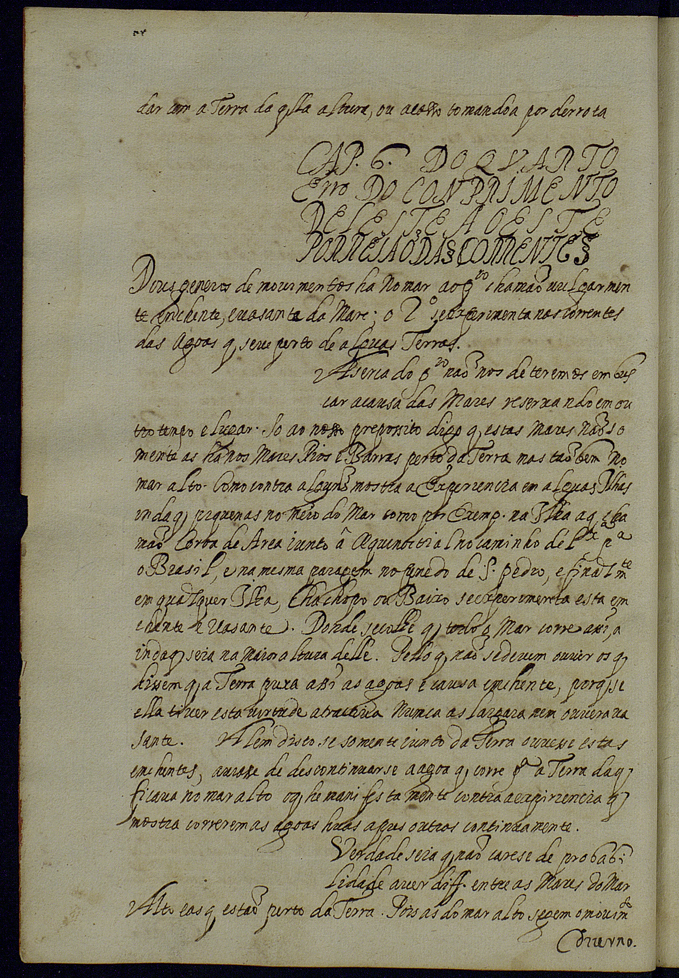 dar com a Terra da qlla altura, ou acazo tomandoa por derrota
CAP. 6. DO QVARTO
Erro DO COMPRIMENTO
DE LESTE A OESTE
POR RESAÕ DAS CORRENTES
Dous generos de movimentos ha no mar ao pro chamaõ vulgarmen
te Enchente, e vasante da Mare: o 2º se experimenta nas correntes
das Agoas q se ve perto de alguas Terras.
Aserca do pro naõ nos deteremos em bus
car a causa das Mares reservando em ou
tro tempo e lugar. So ao nosso preposito digo q estas Mares naõ so
mente as ha nos Mares Rios e Barras perto da Terra mas taõbem no
mar alto. Como contra alguñs mostra a Experiencia em alguas Ilhas
inda q piquenas no meio do Mar como por Exemp. na Ilha a q cha
maõ Coroa de Area iunto â Aquinoctial no caminho de Lxa pa
o Brasil, e na mesma paragem no penedo de S. pedro, e finalmte
em qualquer Ilha, Chachopo ou Baixo se experimenta esta em
chente e Vasante. Donde se colhe q todo o Mar corre assi, a
inda q seia na maior altura delle. Pello q naõ se devem ouvir os q
dissem q a Terra puxa a si as agoas e causa emchente, porq se
ella tiver esta virtude atractiva Nunca as largara nem ouvera va
sante. Alem disto se somente iunto da Terra ouvese estas
emchentes, avia-se de descontinuarse a agoa q corre pa a Terra da q
ficava no mar alto o q he manifestamente contra a expiriencia q
mostra correrem as agoas huas apus outras continuamente.
Verdade seia q naõ carese de probabi
lidade aver diff. entre as Mares do Mar
Alto e as q estaõ perto da Terra. Pois as do mar alto segem o movimto
Diurno.